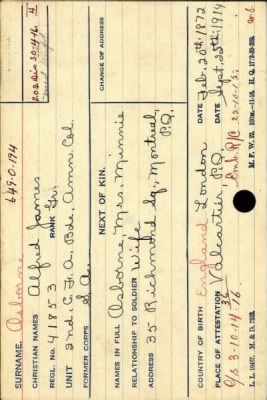 649-0-194
SURNAME. Osborne
CHRISTIAN NAMES Alfred James
REGL. NO. 41853 RANK Gr.
UNIT 2nd. C.F.A. Bde. Amm. Col.
FORMER CORPS S.A.
NEXT OF KIN.
NAMES IN FULL Osborne, Mrs. Minnie
RELATIONSHIP TO SOLDIER Wife
ADDRESS 35 Richmond Sq. Montreal,
P.Q.
COUNTRY OF BIRTH England London DATE Feb. 20th 1872
PLACE OF ATTESTATION Valcartier, P.Q. DATE Sept. 25th 1914
O/S 3-10-14
R/C 22-10-15
CHANGE OF ADDRESS
S.O.S. Dis 30-4-16
H
L. L. 10617. M. & D. 7933.
M. F. W. 22.